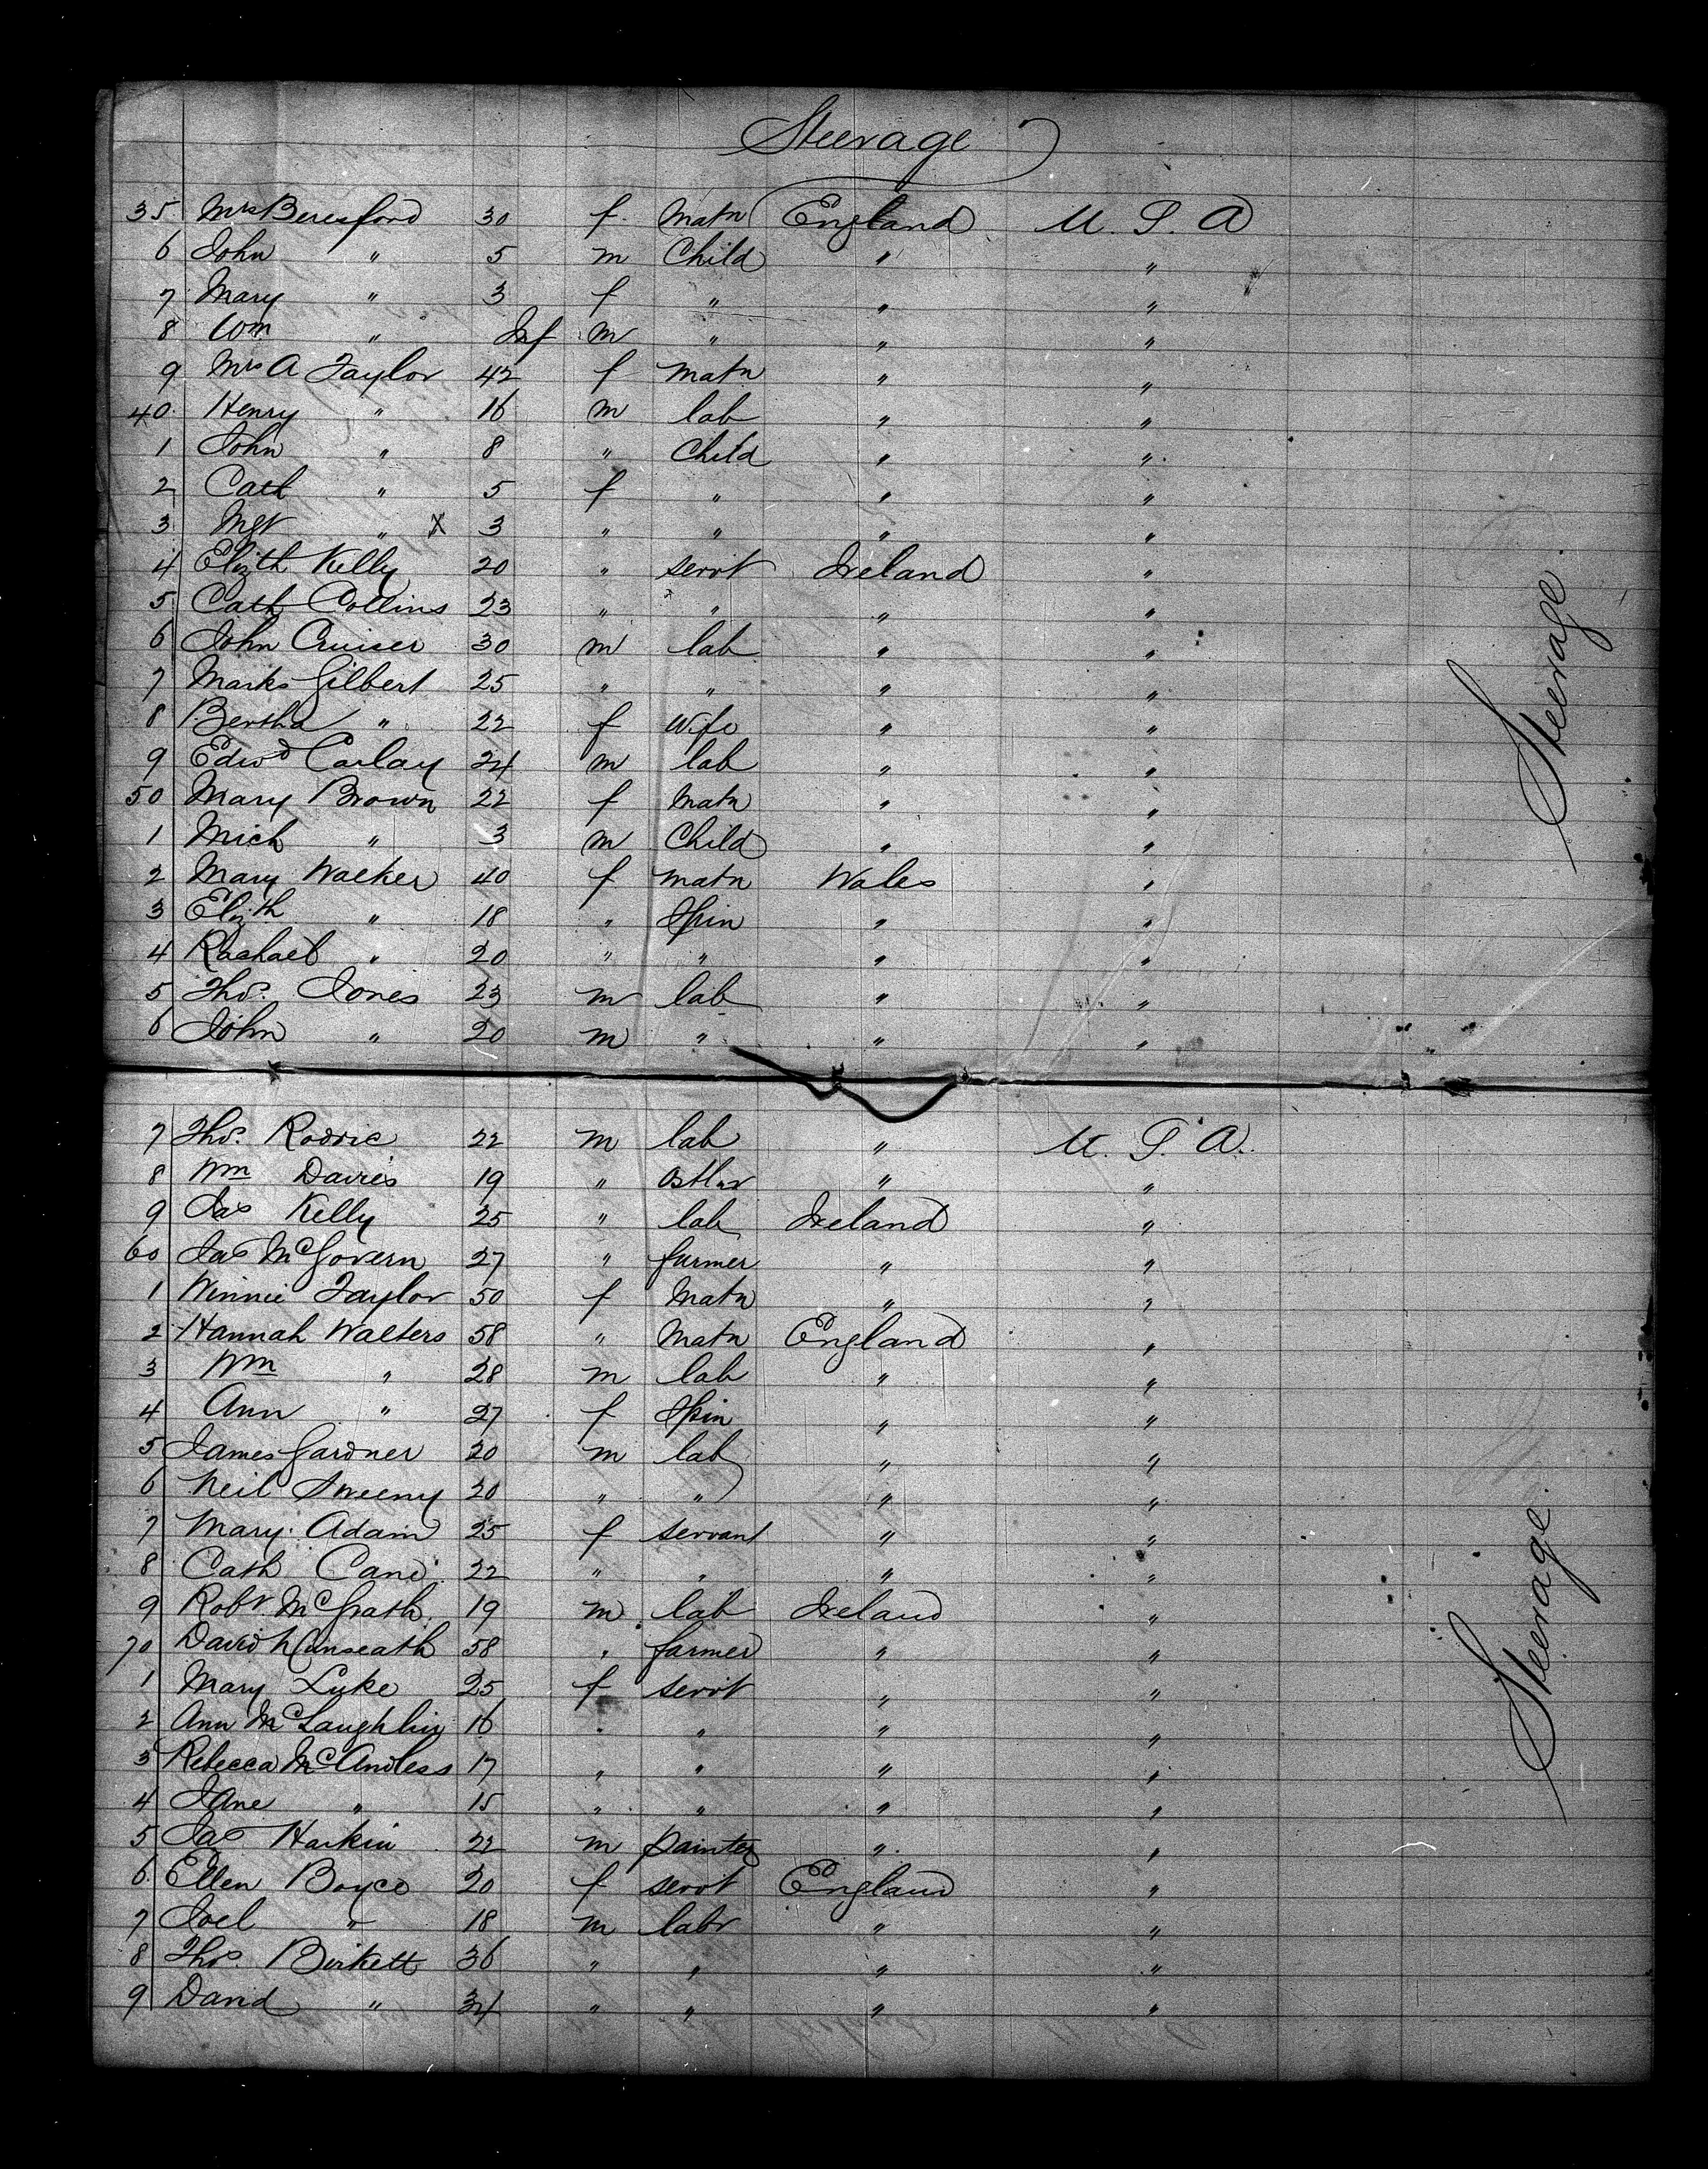 Steerage
35 Mrs Beresford 30 f. Matn England U. S. A
6 John " 5 m Child " "
7 Mary " 3 f " " "
8 Wm " Inf m " " "
9 Mrs A Taylor 42 f Matn " "
40 Henry " 16 m lab " "
1 John " 8 " Child " "
2 Cath " 5 f " " "
3 Mgt " X 3 " " " "
4 Elizth Kelly 20 " servt Ireland "
5 Cath Collins 23 " " " "
6 John Cruiser 30 m lab " "
7 Marks Gilbert 25 " " " "
8 Bertha " 22 f Wife " "
9 Edwd Carlay 24 m lab " "
50 Mary Brown 22 f Matn " "
1 Mich " 3 m Child " "
2 Mary Walker 40 f Matn Wales "
3 Elizth " 18 " Spin " "
4 Rachael " 20 " " " "
5 Thos. Jones 23 m lab " "
6 John " 20 m " " "
7 Thos. Rodric 22 m lab " U. S. A.
8 Wm Davies 19 " Ostler " "
9 Jas Kelly 25 " lab Ireland "
60 Jas McGovern 27 " farmer " "
1 Winnie Taylor 50 f Matn " "
2 Hannah Walters 58 " Matn England "
3 Wm " 28 m lab " "
4 Ann " 27 f Spin " "
5 James Gardner 20 m lab " "
6 Neil Sweeny 20 " " " "
7 Mary Adam 25 f servant " "
8 Cath Cane 22 " " " "
9 Robt. McGrath. 19 m lab Ireland "
70 David 58 " farmer " "
1 Mary Luke 25 f servt " "
2 Ann McLaughlin 16 " " " "
3 Rebecca McAndless 17 " " " "
4 Jane " 15 " " " "
5 Jas Harkin 22 m painter " "
6 Ellen Boyce 20 f servt England "
7 Joel " 18 m labr " "
8 Thos. Birkett 36 " " " "
9 David " 34 " " " "
Steerage.
Steerage.